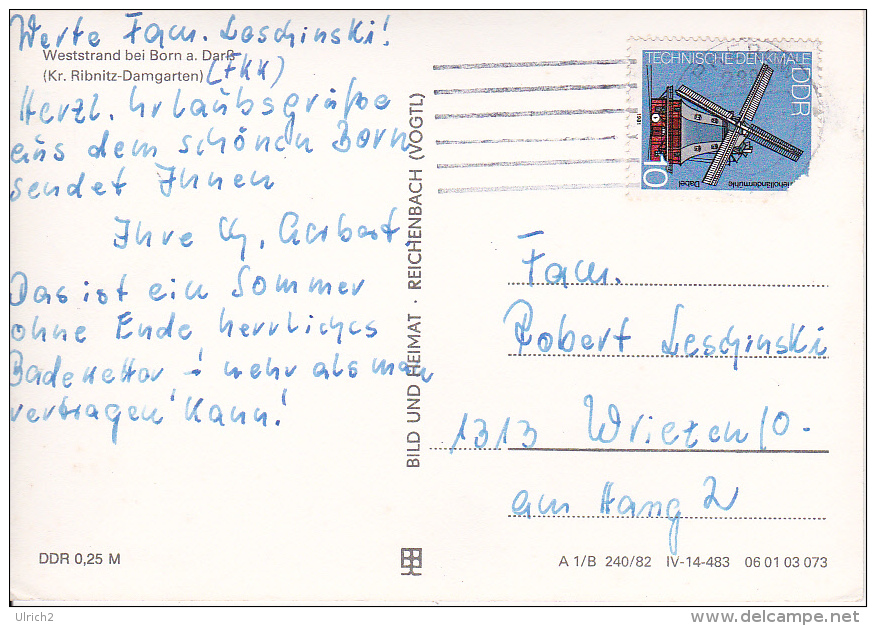 Werte Fam. Leschinski!
Weststrand bei Born a. Darß
(Kr. Ribnitz-Damgarten) (FKK)
Herzl. Urlaubsgrüße
aus dem schönen Born
sendet Ihnen
Ihre
Das ist ein Sommer
ohne Ende herrliches
Badewetter – mehr als man
vertragen kann!
BILD UND HEIMAT · REICHENBACH (VOGTL)
TECHNISCHE DENKMALE
DDR
1981
10
Dabel
Fam.
Robert Leschinski
1313 Wriezen/O-
am Hang 2
DDR 0,25 M
A 1/B 240/82 IV-14-483 06 01 03 073
Ulrich2
delcampe.net